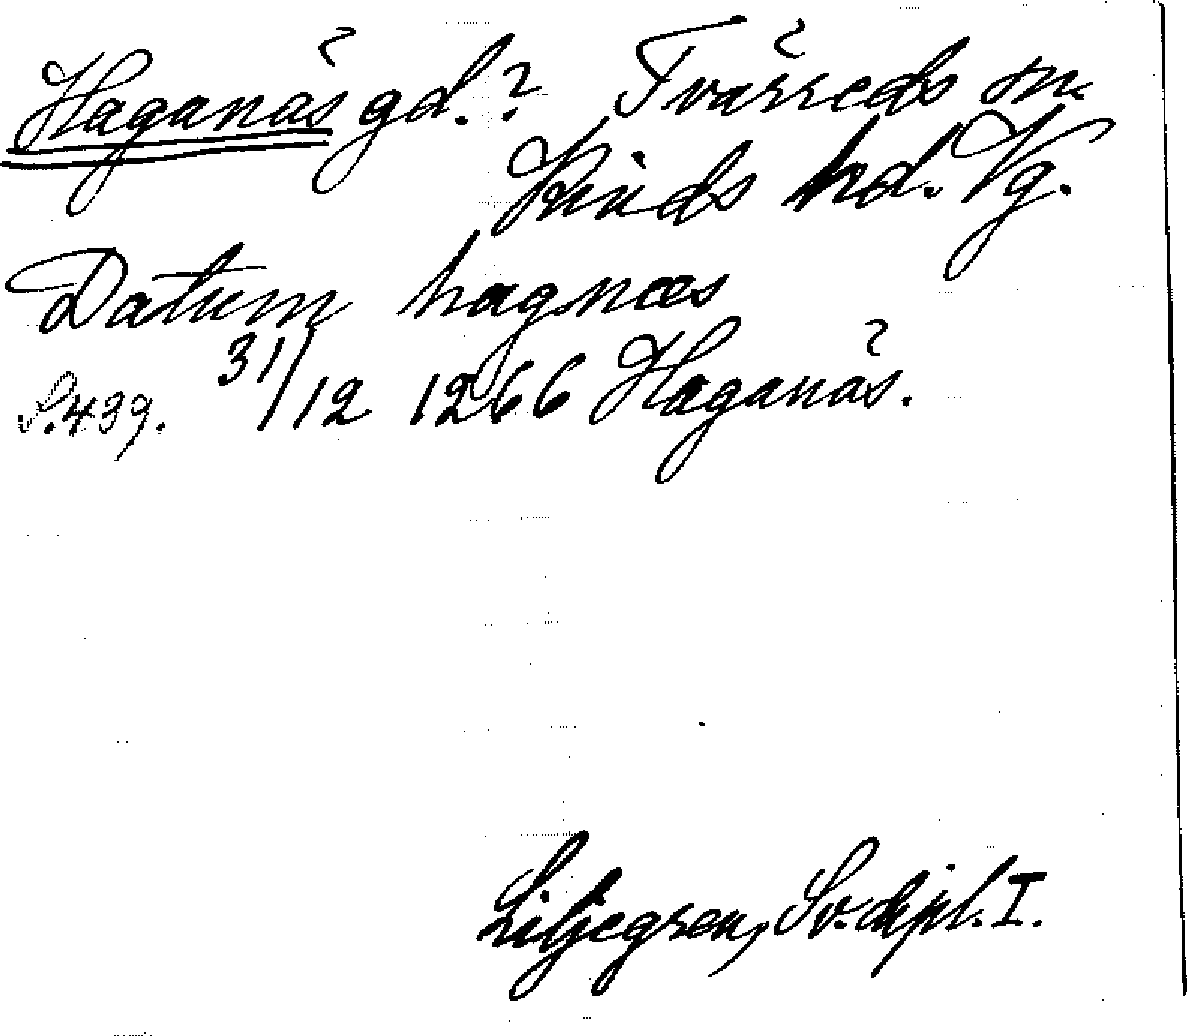 Haganäs gd.? Tvärreds sn.
Kinds hd. Vg.
Datum hagnæs
S.439. 31/12 1266 Haganäs.
Liljegren, Sv. dipl. I.